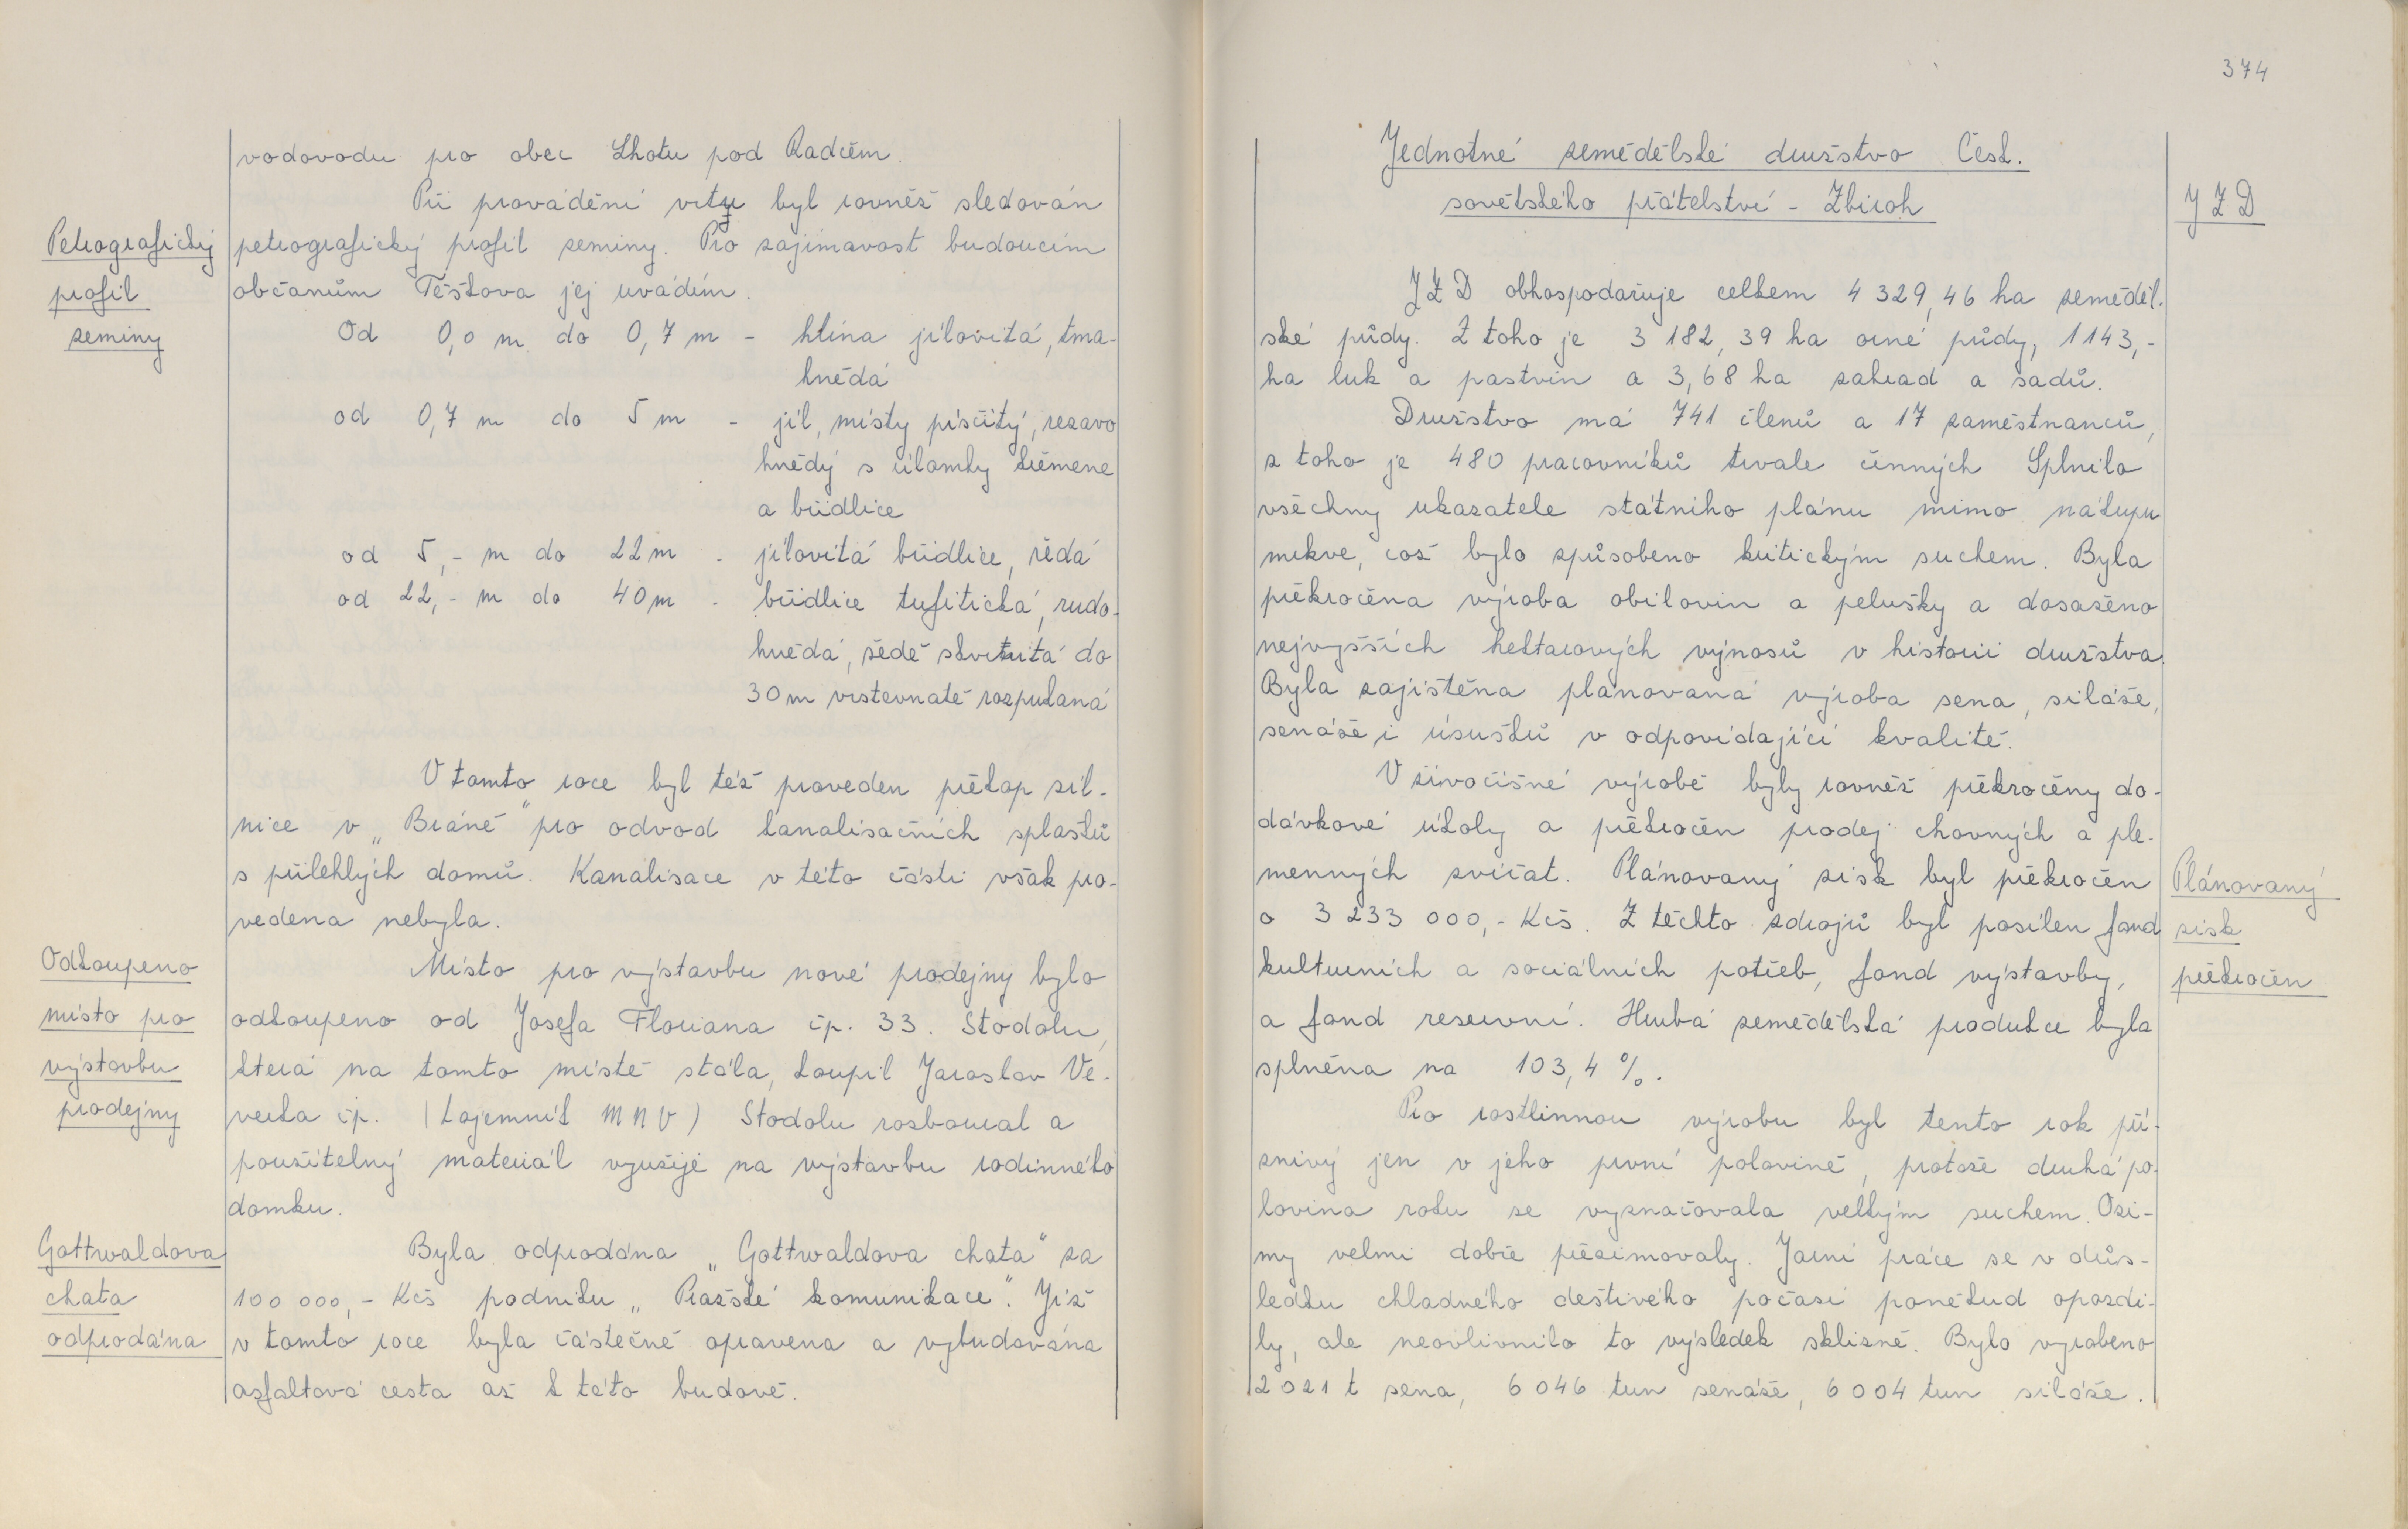 vodovodu pro obec Lhotu pod Radčem.
Při provádění vrtu byl rovněž sledován
Petrografický
profil
zeminy
petrografický profil zeminy. Pro zajímavost budoucím
občanům Těškova jej uvádím.
Od 0,0 m do 0,7 m - hlína jílovitá, tma-
hnědá
od 0,7 m do 5 m - jíl, místy písčitý, rezavo
hnědý s úlomky křemene
a břidlice
od 5,- m do 22 m - jílovitá břidlice, šedá
od 22,- m do 40 m - břidlice tufitická, rudo-
hnědá, šedě skvrnitá do
30 m vrstevnatě rozpukaná
V tomto roce byl též proveden překop sil-
nice v „Bráně" pro odvod kanalisačních splašků
s přilehlých domů. Kanalisace v této části však pro-
vedena nebyla.
Odkoupeno
místo pro
výstavbu
prodejny
Místo pro výstavbu nové prodejny bylo
odkoupeno od Josefa Floriana čp. 33. Stodolu,
která na tomto místě stála, koupil Jaroslav Ve-
verka čp. (tajemník MNV) Stodolu rozboural a
použitelný materiál využije na výstavbu rodinného
domku.
Gottwaldova
chata
odprodána
Byla odprodána „Gottwaldova chata" za
100 000,- Kčs podniku „Pražské komunikace". Již
v tomto roce byla částečně opravena a vybudována
asfaltová cesta až k této budově.
374
Jednotné zemědělské družstvo Česk.
sovětského přátelství - Zbiroh
JZD
JZD obhospodařuje celkem 4 329,46 ha zeměděl-
ské půdy. Z toho je 3 182,39 ha orné půdy, 1143,-
ha luk a pastvin a 3,68 ha zahrad a sadů.
Družstvo má 741 členů a 17 zaměstnanců,
z toho je 480 pracovníků trvale činných Splnilo
všechny ukazatele státního plánu mimo nákupu
mrkve, což bylo způsobeno kritickým suchem. Byla
překročena výroba obilovin a pelušky a dosaženo
nejvyšších hektarových výnosů v historii družstva.
Byla zajištěna plánovaná výroba sena, siláže,
senáže i úsušků v odpovídající kvalitě.
V živočišné výrobě byly rovněž překročeny do-
dávkové úkoly a překročen prodej chovných a ple-
menných zvířat. Plánovaný zisk byl překročen
Plánovaný
zisk
překročen
o 3 233 000,- Kčs. Z těchto zdrojů byl posílen fond
kulturních a sociálních potřeb, fond výstavby,
a fond reservní. Hrubá zemědělská produkce byla
splněna na 103,4 %.
Pro rostlinnou výrobu byl tento rok pří-
znivý jen v jeho první polovině, protože druhá po-
lovina roku se vyznačovala velkým suchem. Ozi-
my velmi dobře přezimovaly. Jarní práce se v důs-
ledku chladného deštivého počasí poněkud opozdi-
ly, ale neovlivnilo to výsledek sklizně. Bylo vyrobeno
2 021 t sena, 6 046 tun senáže, 6 004 tun siláže.